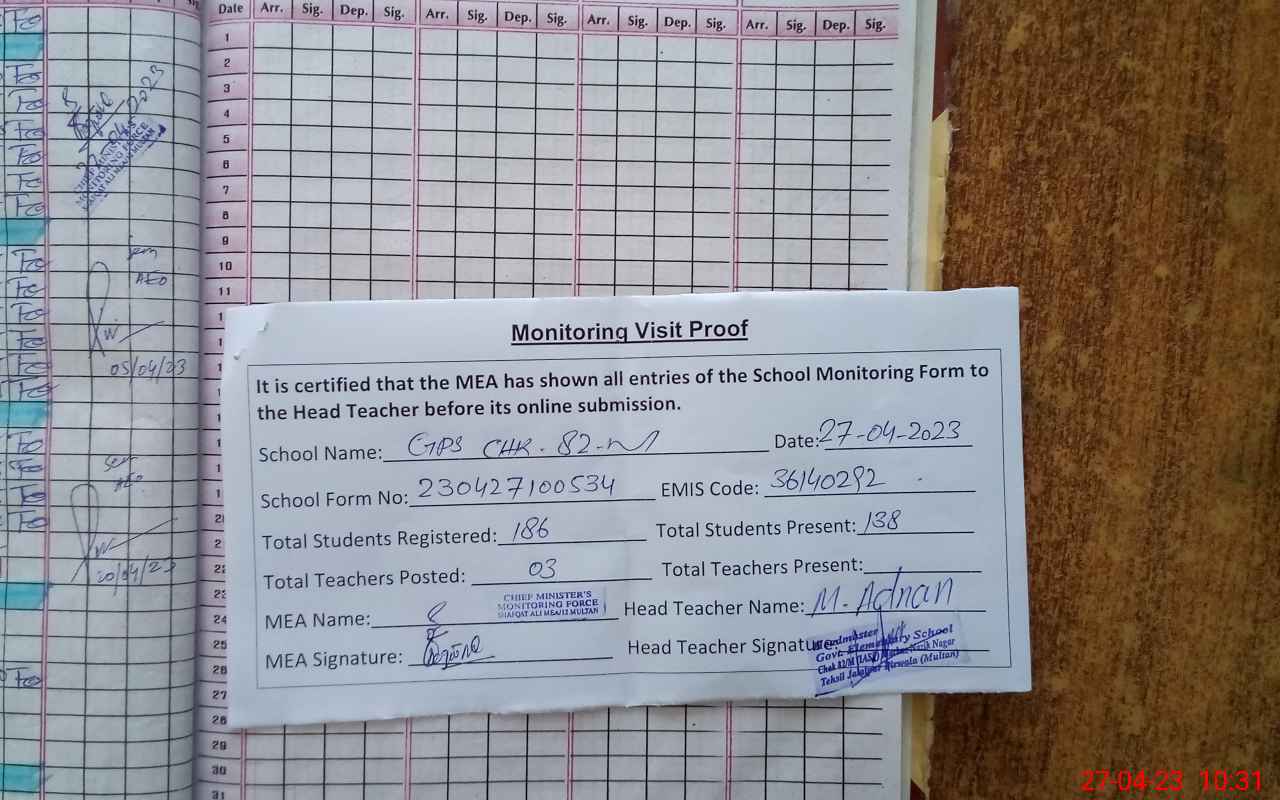 Date Arr. Sig. Dep. Sig. Arr. Sig. Dep. Sig. Arr. Sig. Dep. Sig. Arr. Sig. Dep. Sig.
1
2
3
4
5
6
7
8
9
10
11
2023
CHIEF MINISTER'S
MONITORING FORCE
AEO
05/04/23
AEO
20/04/23
Monitoring Visit Proof
It is certified that the MEA has shown all entries of the School Monitoring Form to
the Head Teacher before its online submission.
School Name: GPS CHK. 82-M Date: 27-04-2023
School Form No: 230427100534 EMIS Code: 36140292
Total Students Registered: 186 Total Students Present: 138
Total Teachers Posted: 03 Total Teachers Present:
MEA Name: CHIEF MINISTER'S
MONITORING FORCE
SHAFQAT ALI MEA/12 MULTAN
Head Teacher Name: M. Adnan
MEA Signature: Head Teacher Signature:
Headmaster
Govt. Elementary School
Chak 82/M Nagar
Tehsil Jalalpur Pirwala (Multan)
23
24
25
26
27
28
29
30
31
27-04-23 10:31